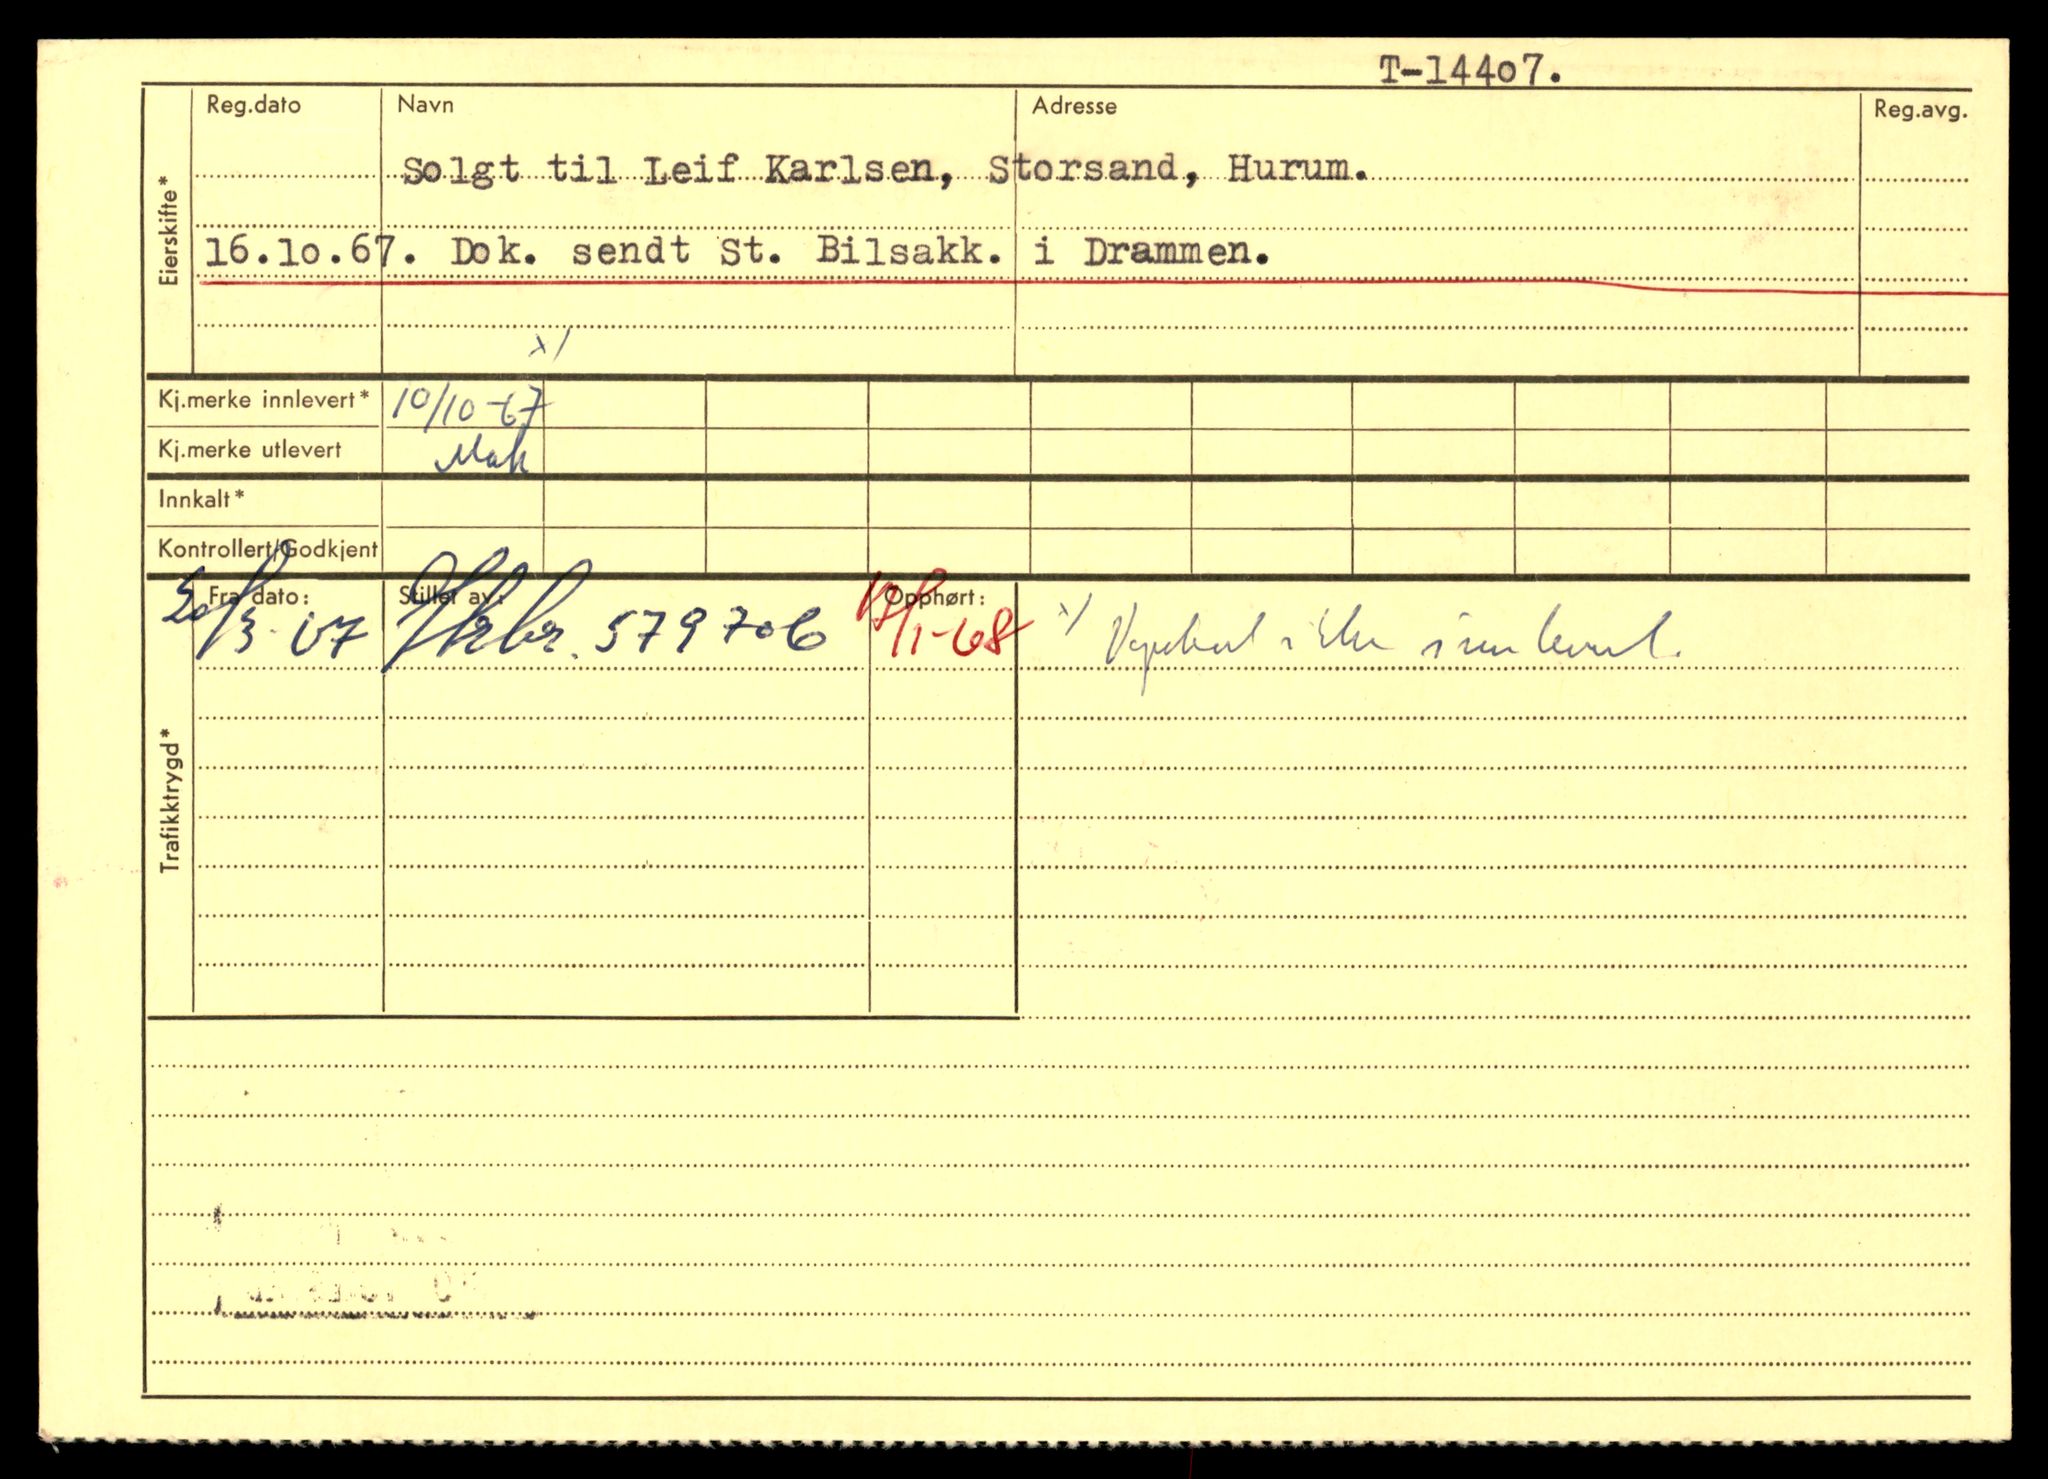 T-14407.
Reg.dato Navn Adresse Reg.avg.
Eierskifte*
Solgt til Leif Karlsen, Storsand, Hurum.
16.10.67. Dok. sendt St. Bilsakk. i Drammen.
x/
Kj.merke innlevert* 10/10-67
Kj.merke utlevert
Innkalt*
Kontrollert/Godkjent
Trafikktrygd*
Fra dato: Stiller av: Opphørt:
20/3-67 579706 1-68 x/ Vognkort ikke innlevert.